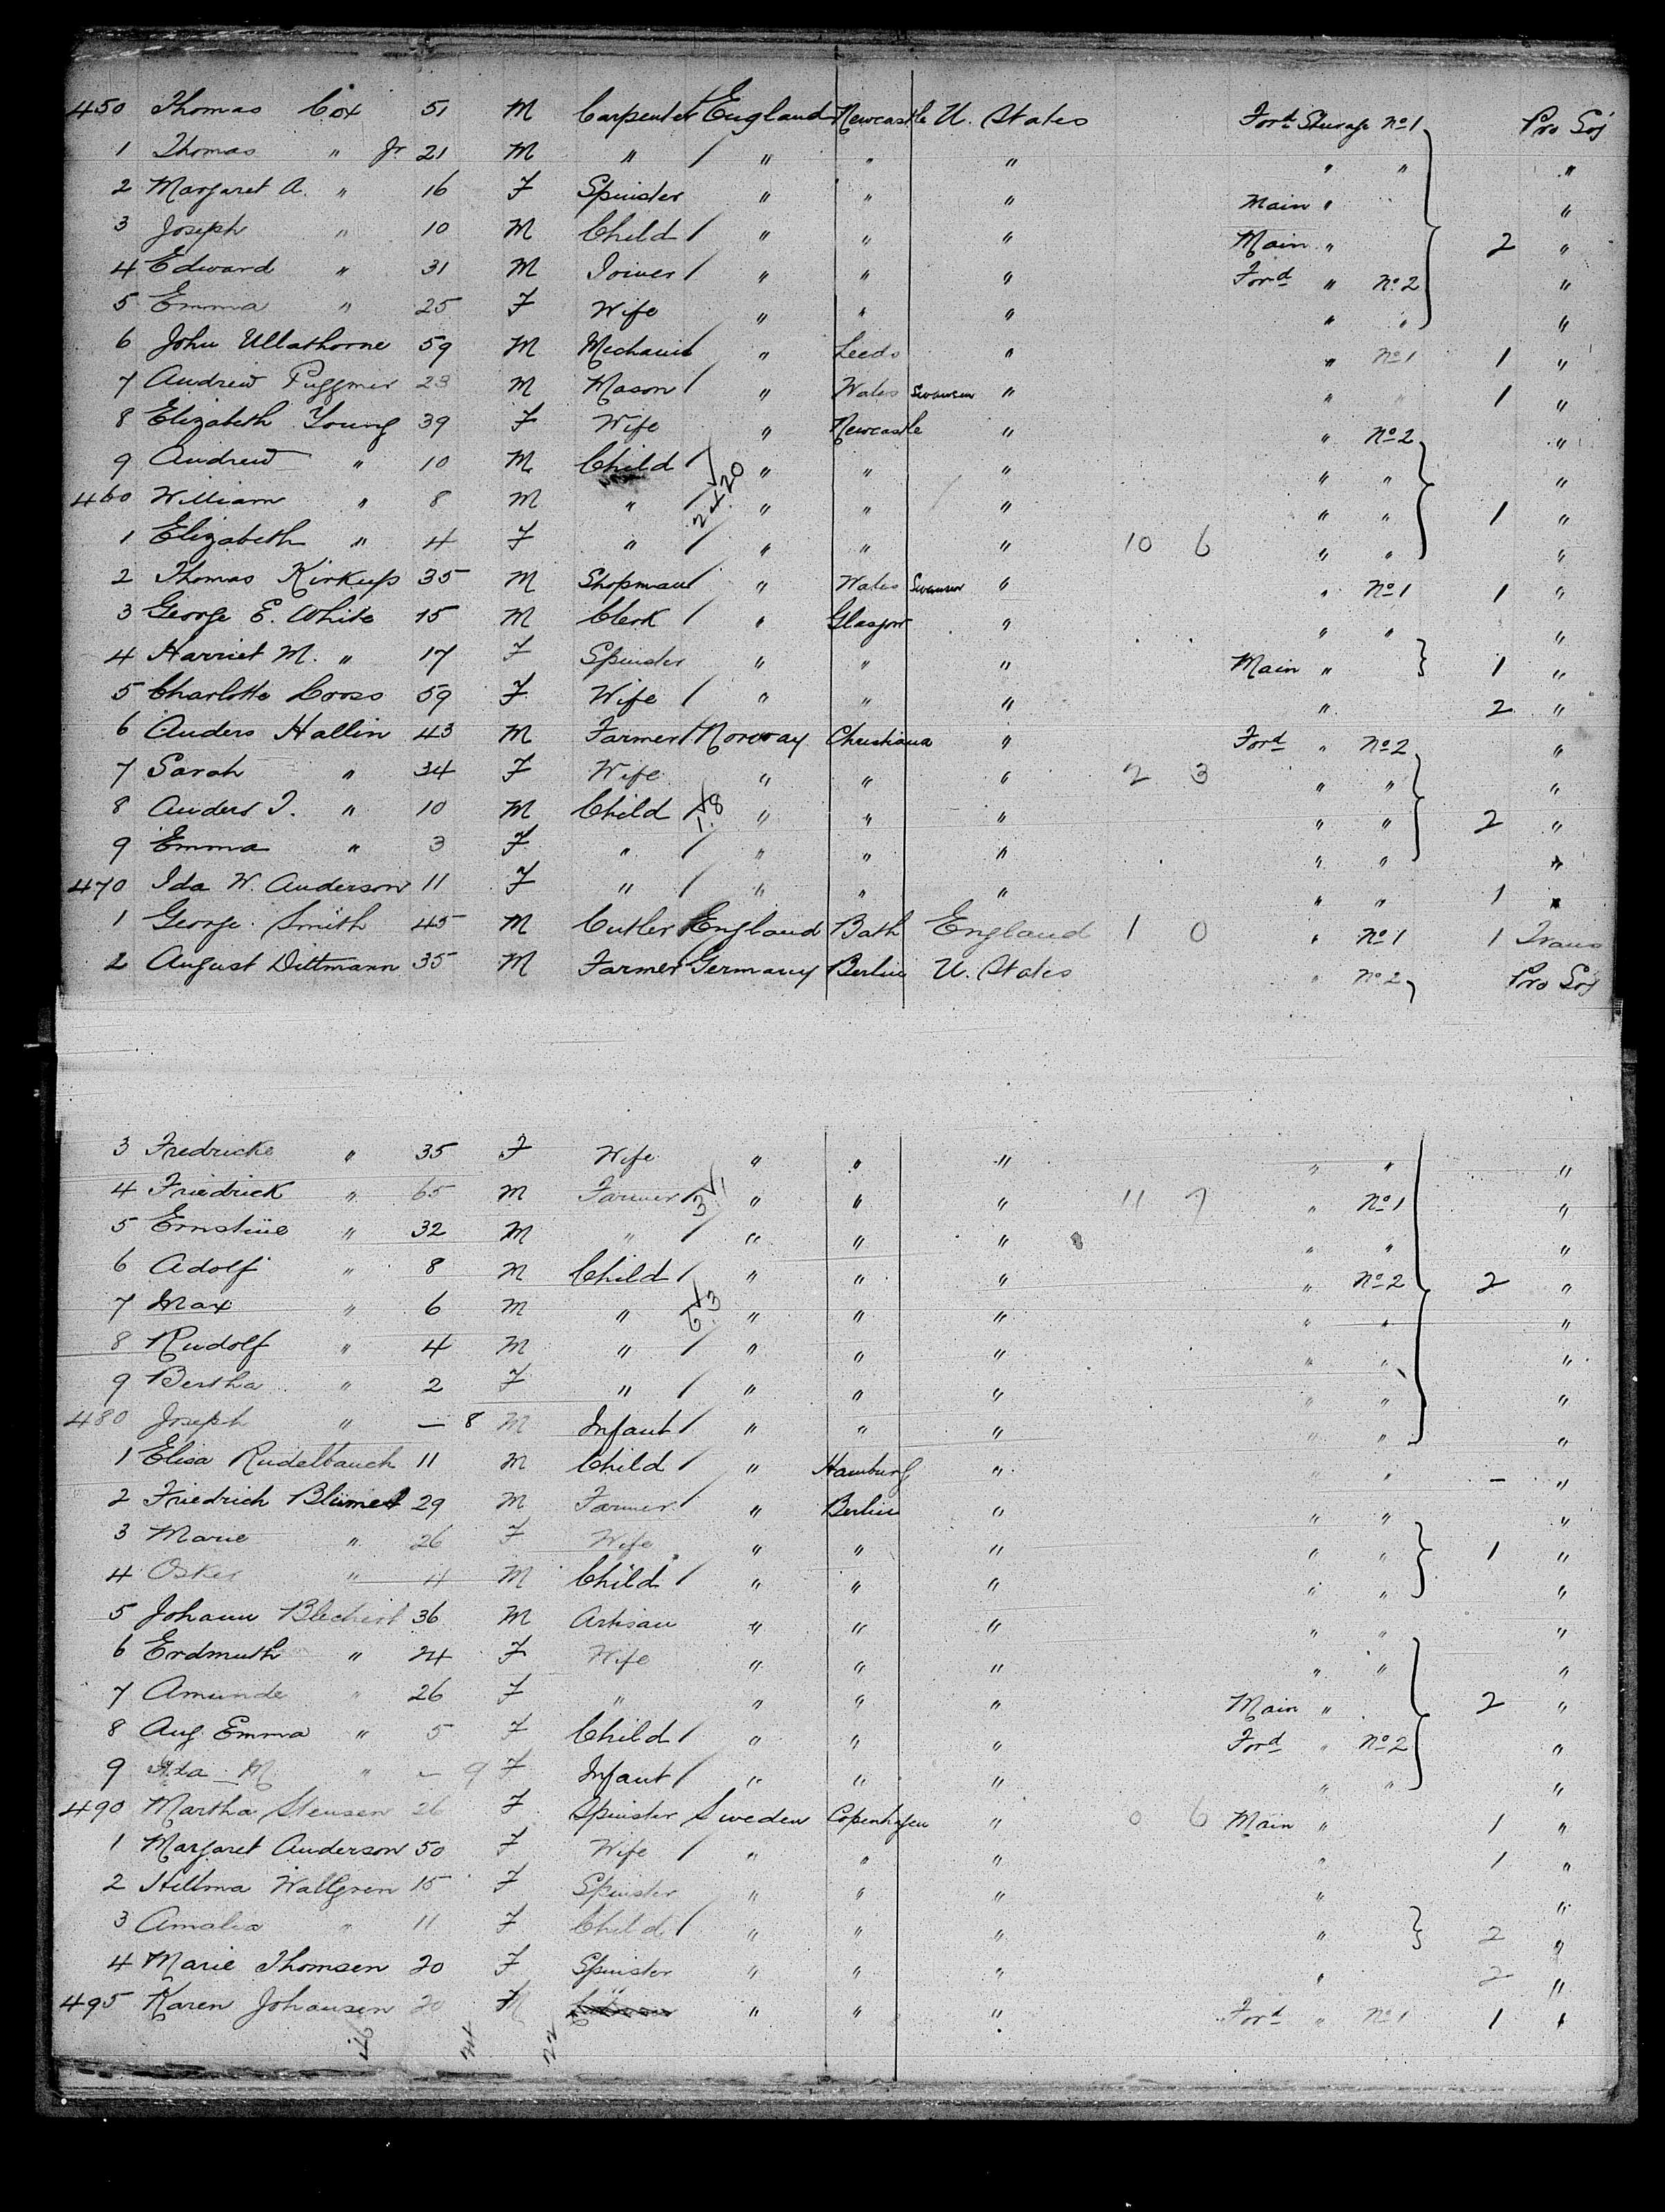 450 Thomas Cox 51 M Carpenter England Newcastle U. States Ford Steerage No 1 Pro Soj
1 Thomas " Jr 21 M " / " " " " " "
2 Margaret A. " 16 F Spinster " " " Main " "
3 Joseph " 10 M Child / " " " Main " 2 "
4 Edward " 31 M Joiner / " " " Ford " No. 2 "
5 Emma " 25 F Wife " " " " " "
6 John Ullathorne 59 M Mechanic " Leeds " " No 1 1 "
7 Andrew 23 M Mason / " Wales Swansea " " " 1 "
8 Elizabeth Young 39 F Wife " Newcastle " " No 2 "
9 Andrew " 10 M Child / " " " " " "
460 William " 8 M " / " " " " " 1 "
1 Elizabeth " 4 F " / " " " 10 6 " " "
2 Thomas Kirkup 35 M Shopman / " Wales Swansea " " No 1 1 "
3 George E. White 15 M Clerk / " Glasgow " " " "
4 Harriet M. " 17 F Spinster " " " Main " 1 "
5 Charlotte 59 F Wife / " " " " 2 "
6 Anders Hallin 43 M Farmer / Norway Christiana " Ford " No 2 "
7 Sarah " 34 F Wife " " " 2 3 " " "
8 Anders J. " 10 M Child / " " " " " 2 "
9 Emma " 3 F " / " " " " " "
470 Ida W. Anderson 11 F " / " " " " " 1 "
1 George Smith 45 M Cutler / England Bath England 1 0 " No 1 1 Trans
2 August Dittmann 35 M Farmer Germany Berlin U. States " No 2 Pro Soj
3 Fredricke " 35 F Wife " " " " " "
4 Friedrick " 65 M Farmer / " " " 11 7 " No 1 "
5 Ernstine " 32 M " / " " " " " "
6 Adolf " 8 M Child / " " " " No 2 2 "
7 Max " 6 M " " " " " " "
8 Rudolf " 4 M " / " " " " " "
9 Bertha " 2 F " / " " " " " "
480 Joseph " — 8 M Infant / " " " " " "
1 Elisa Rudelbauch 11 M Child / " Hamburg " " " – "
2 Friedrich Blümel 29 M Farmer / " Berlin " " " "
3 Marie " 26 F Wife " " " " " 1 "
4 Osker " 4 M Child / " " " " " "
5 Johann Blechert 36 M Artisan " " " " " "
6 Erdmuth " 24 F Wife " " " " " "
7 Amunde " 26 F " " " " Main " 2 "
8 Aug. Emma " 5 F Child / " " " Ford " No 2 "
9 Ida M " – 9 F Infant / " " " " " "
490 Martha Stensen 26 F Spinster Sweden Copenhagen " 0 6 Main " 1 "
1 Margaret Anderson 50 F Wife / " " " " 1 "
2 Hillma Wallgren 15 F Spinster " " " " "
3 Amalia " 11 F Child / " " " " 2 "
4 Marie Thomsen 20 F Spinster " " " " 2 "
495 Karen Johansen 20 M " " " Ford " No 1 1 "